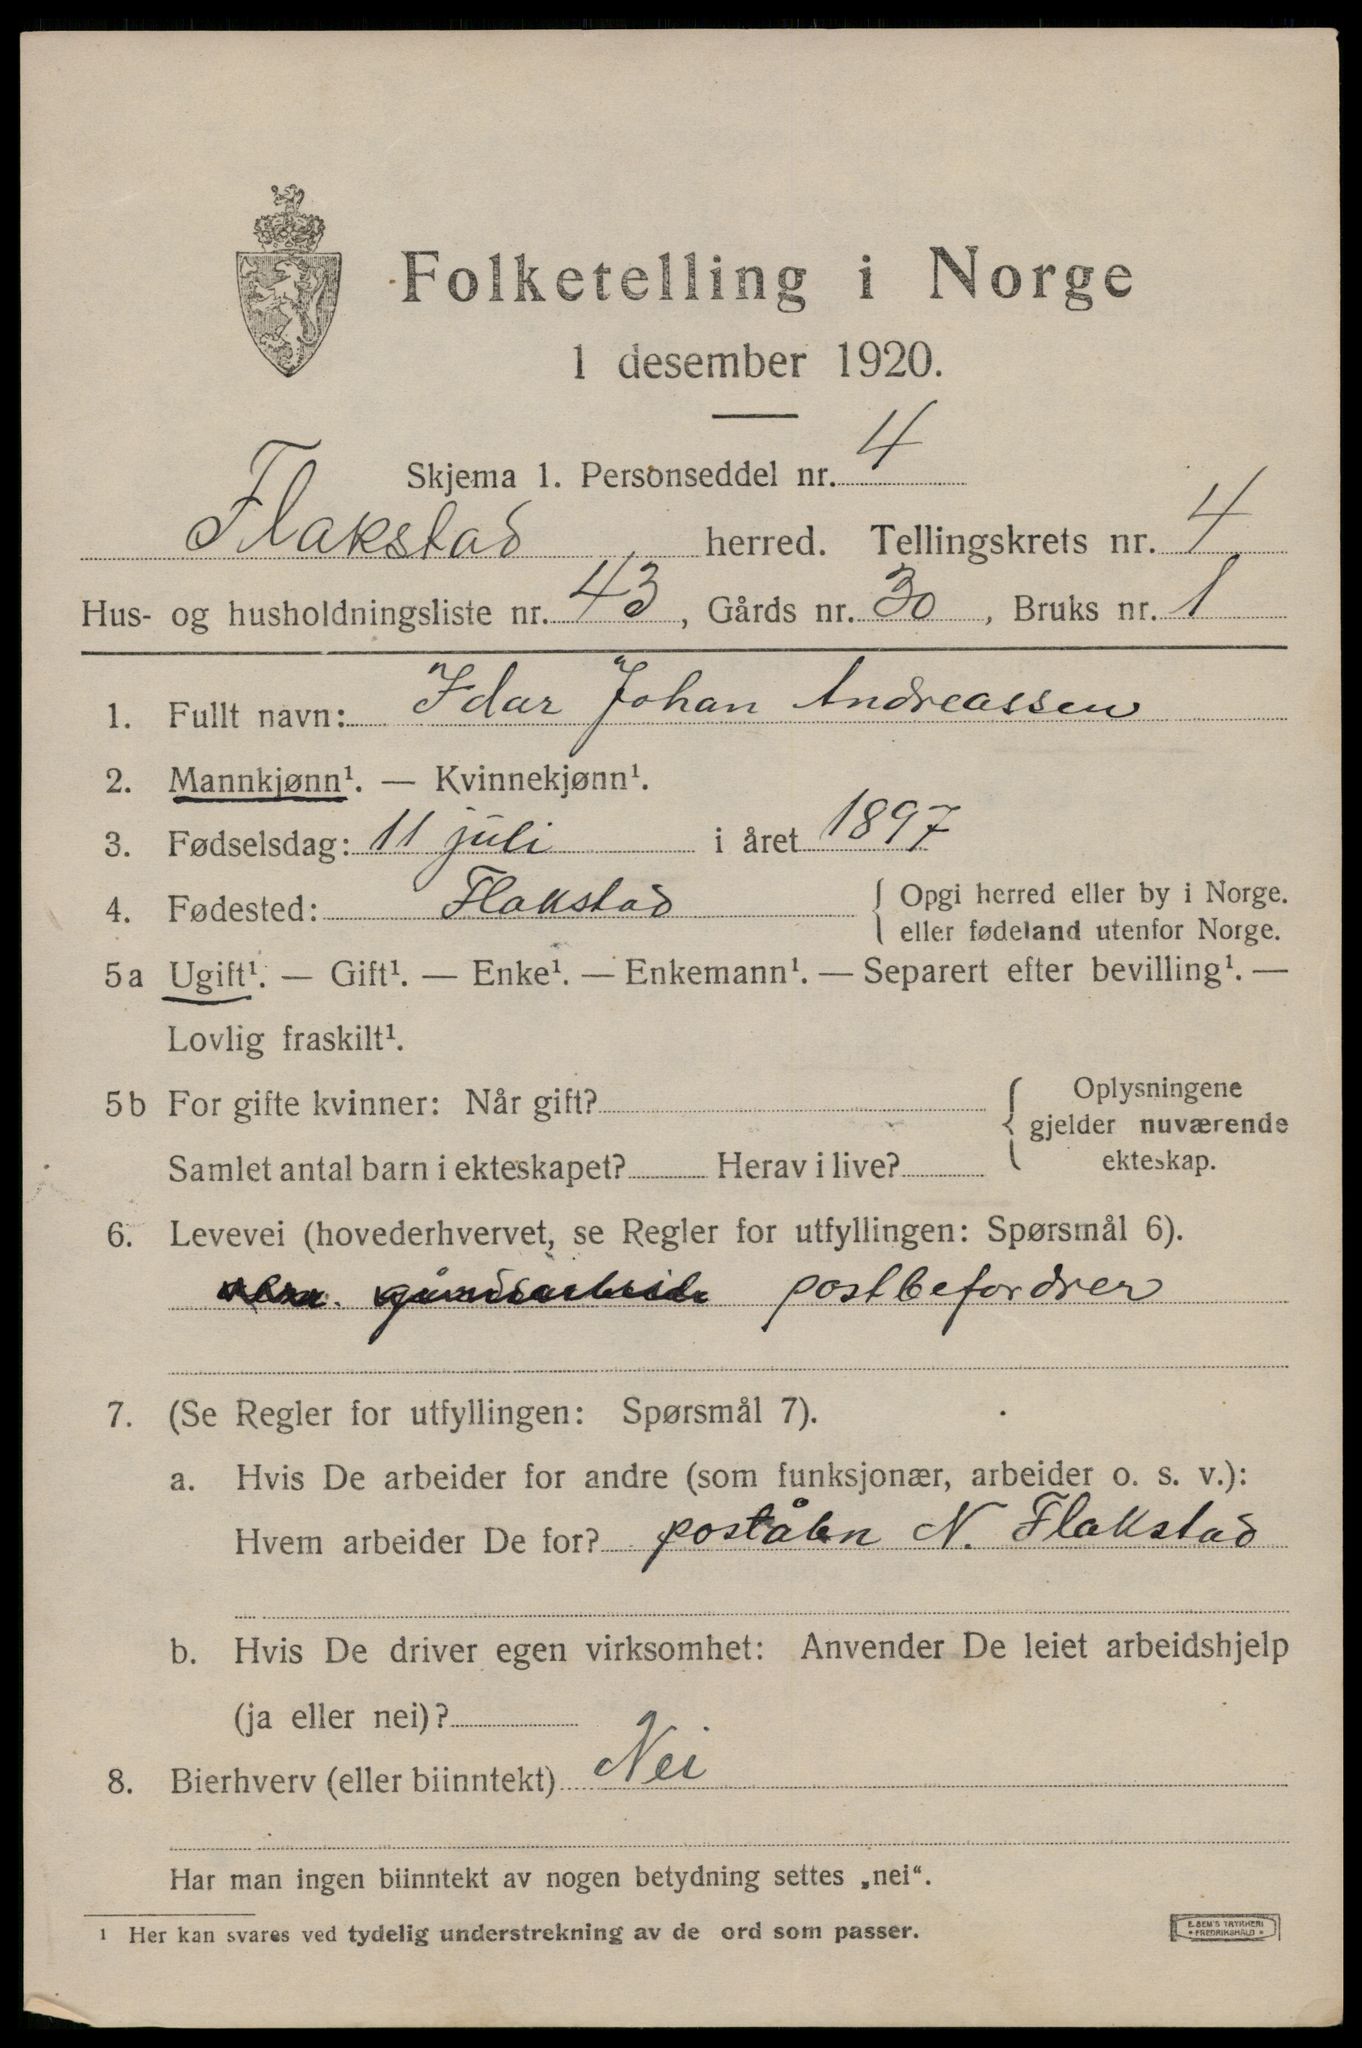 Folketelling i Norge
1 desember 1920.
Skjema 1. Personseddel nr. 4
Flakstad herred. Tellingskrets nr. 4
Hus- og husholdningsliste nr. 43, Gårds nr. 30, Bruks nr. 1
1. Fullt navn: Idar Johan Andreassen
2. Mannkjønn¹. — Kvinnekjønn¹.
3. Fødselsdag: 11 juli i året 1897
4. Fødested: Flakstad { Opgi herred eller by i Norge.
eller fødeland utenfor Norge.
5a Ugift¹. — Gift¹. — Enke¹. — Enkemann¹. — Separert efter bevilling¹. —
Lovlig fraskilt¹.
5b For gifte kvinner: Når gift? { Oplysningene
gjelder nuværende
Samlet antal barn i ekteskapet? Herav i live? ekteskap.
6. Levevei (hovederhvervet, se Regler for utfyllingen: Spørsmål 6).
gårdsarbeide postbefordrer
7. (Se Regler for utfyllingen: Spørsmål 7).
a. Hvis De arbeider for andre (som funksjonær, arbeider o. s. v.):
Hvem arbeider De for? poståbn N. Flakstad
b. Hvis De driver egen virksomhet: Anvender De leiet arbeidshjelp
(ja eller nei)?
8. Bierhverv (eller biinntekt) Nei
Har man ingen biinntekt av nogen betydning settes „nei“.
¹ Her kan svares ved tydelig understrekning av de ord som passer.
E. SEM'S TRYKKERI
* FREDRIKSHALD *